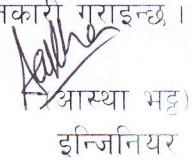 नकारी गराइन्छ ।
आस्था भट्ट)
इन्जिनियर